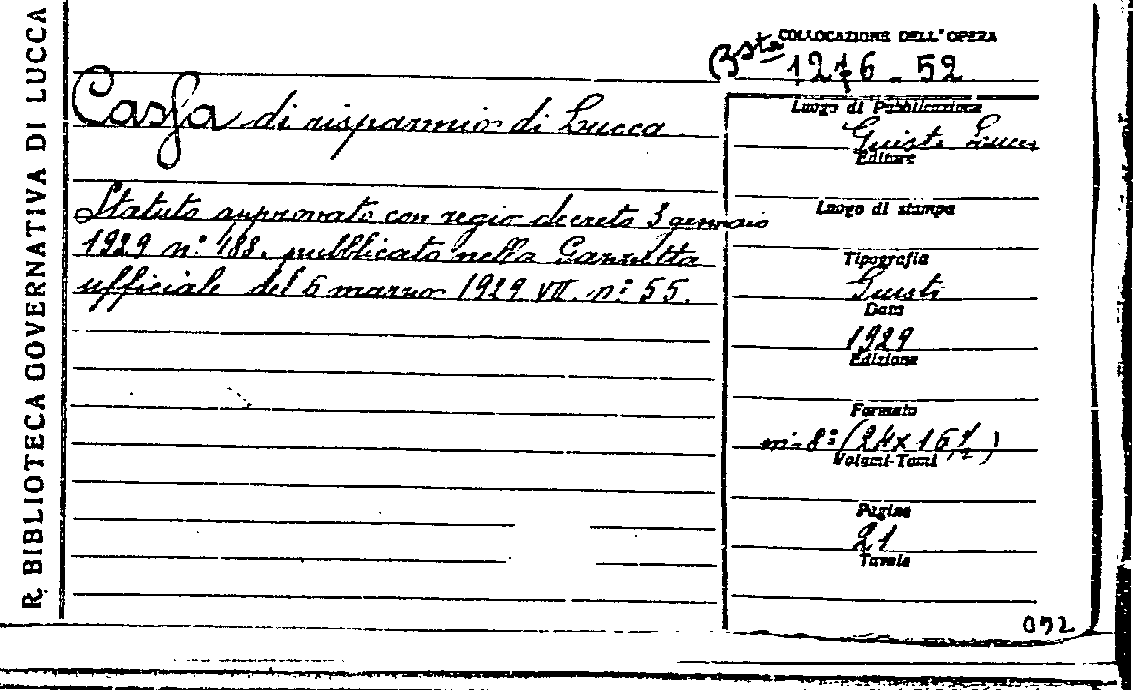 R. BIBLIOTECA GOVERNATIVA DI LUCCA
COLLOCAZIONE DELL'OPERA
Bsta 1276 - 52
Cassa di risparmio di Lucca
Statuto approvato con regio decreto 3 gennaio
1929 n° 183. pubblicato nella Gazzetta
ufficiale del 6 marzo 1929 VII. n° 55.
Luogo di Pubblicazione
Giusti Lucca
Editore
Luogo di stampa
Tipografia
Giusti
Data
1929
Edizione
Formato
in-8° (24x16½)
Volumi-Tomi
Pagine
21
Tavole
092